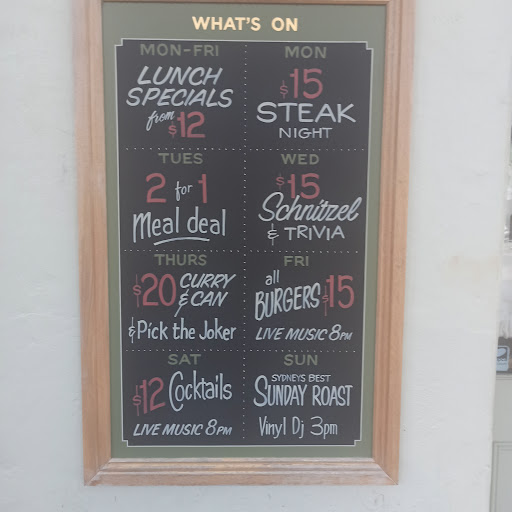 WHAT'S ON
MON-FRI
LUNCH
SPECIALS
from $12
MON
$15
STEAK
NIGHT
TUES
2 for 1
Meal deal
WED
$15
Schnitzel
& TRIVIA
THURS
$20 CURRY
& CAN
& Pick the Joker
FRI
all
BURGERS $15
LIVE MUSIC 8PM
SAT
$12 Cocktails
LIVE MUSIC 8PM
SUN
SYDNEYS BEST
SUNDAY ROAST
Vinyl Dj 3pm